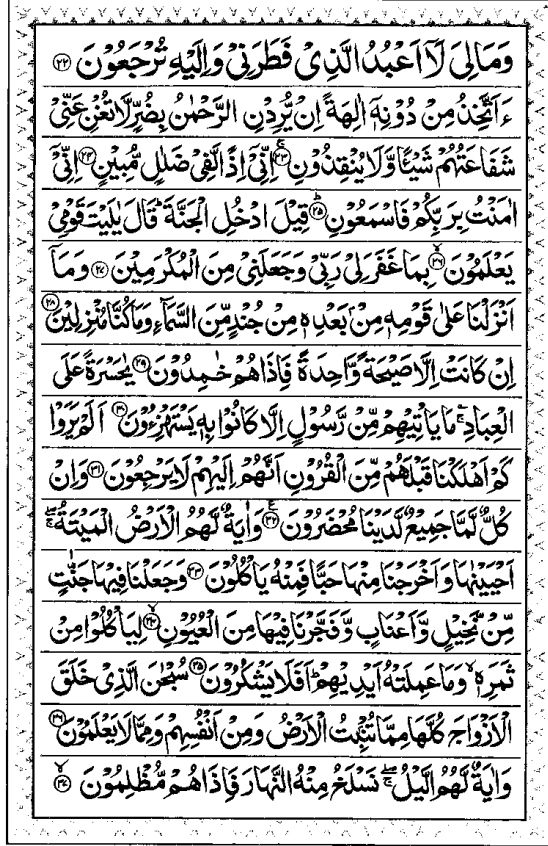 وَمَا لِیَ لَاۤ اَعْبُدُ الَّذِیْ فَطَرَنِیْ وَاِلَیْهِ تُرْجَعُوْنَ ﴿۲۲﴾
ءَاَتَّخِذُ مِنْ دُوْنِهٖۤ اٰلِهَةً اِنْ یُّرِدْنِ الرَّحْمٰنُ بِضُرٍّ لَّا تُغْنِ عَنِّیْ
شَفَاعَتُهُمْ شَیْـًٔا وَّلَا یُنْقِذُوْنِ ﴿۲۳﴾ۚ اِنِّیْۤ اِذًا لَّفِیْ ضَلٰلٍ مُّبِیْنٍ ﴿۲۴﴾ اِنِّیْۤ
اٰمَنْتُ بِرَبِّكُمْ فَاسْمَعُوْنِ ﴿۲۵﴾ؕ قِیْلَ ادْخُلِ الْجَنَّةَ ؕ قَالَ یٰلَیْتَ قَوْمِیْ
یَعْلَمُوْنَ ﴿۲۶﴾ۙ بِمَا غَفَرَ لِیْ رَبِّیْ وَجَعَلَنِیْ مِنَ الْمُكْرَمِیْنَ ﴿۲۷﴾ وَمَاۤ
اَنْزَلْنَا عَلٰی قَوْمِهٖ مِنْۢ بَعْدِهٖ مِنْ جُنْدٍ مِّنَ السَّمَآءِ وَمَا كُنَّا مُنْزِلِیْنَ ﴿۲۸﴾
اِنْ كَانَتْ اِلَّا صَیْحَةً وَّاحِدَةً فَاِذَا هُمْ خٰمِدُوْنَ ﴿۲۹﴾ یٰحَسْرَةً عَلَی
الْعِبَادِ ۚ مَا یَاْتِیْهِمْ مِّنْ رَّسُوْلٍ اِلَّا كَانُوْا بِهٖ یَسْتَهْزِءُوْنَ ﴿۳۰﴾ اَلَمْ یَرَوْا
كَمْ اَهْلَكْنَا قَبْلَهُمْ مِّنَ الْقُرُوْنِ اَنَّهُمْ اِلَیْهِمْ لَا یَرْجِعُوْنَ ﴿۳۱﴾ وَاِنْ
كُلٌّ لَّمَّا جَمِیْعٌ لَّدَیْنَا مُحْضَرُوْنَ ﴿۳۲﴾ۧ وَاٰیَةٌ لَّهُمُ الْاَرْضُ الْمَیْتَةُ ۖۚ
اَحْیَیْنٰهَا وَاَخْرَجْنَا مِنْهَا حَبًّا فَمِنْهُ یَاْكُلُوْنَ ﴿۳۳﴾ وَجَعَلْنَا فِیْهَا جَنّٰتٍ
مِّنْ نَّخِیْلٍ وَّاَعْنَابٍ وَّفَجَّرْنَا فِیْهَا مِنَ الْعُیُوْنِ ﴿۳۴﴾ۙ لِیَاْكُلُوْا مِنْ
ثَمَرِهٖ ۙ وَمَا عَمِلَتْهُ اَیْدِیْهِمْ ؕ اَفَلَا یَشْكُرُوْنَ ﴿۳۵﴾ سُبْحٰنَ الَّذِیْ خَلَقَ
الْاَزْوَاجَ كُلَّهَا مِمَّا تُنْۢبِتُ الْاَرْضُ وَمِنْ اَنْفُسِهِمْ وَمِمَّا لَا یَعْلَمُوْنَ ﴿۳۶﴾
وَاٰیَةٌ لَّهُمُ الَّیْلُ ۖۚ نَسْلَخُ مِنْهُ النَّهَارَ فَاِذَا هُمْ مُّظْلِمُوْنَ ﴿۳۷﴾ۙ